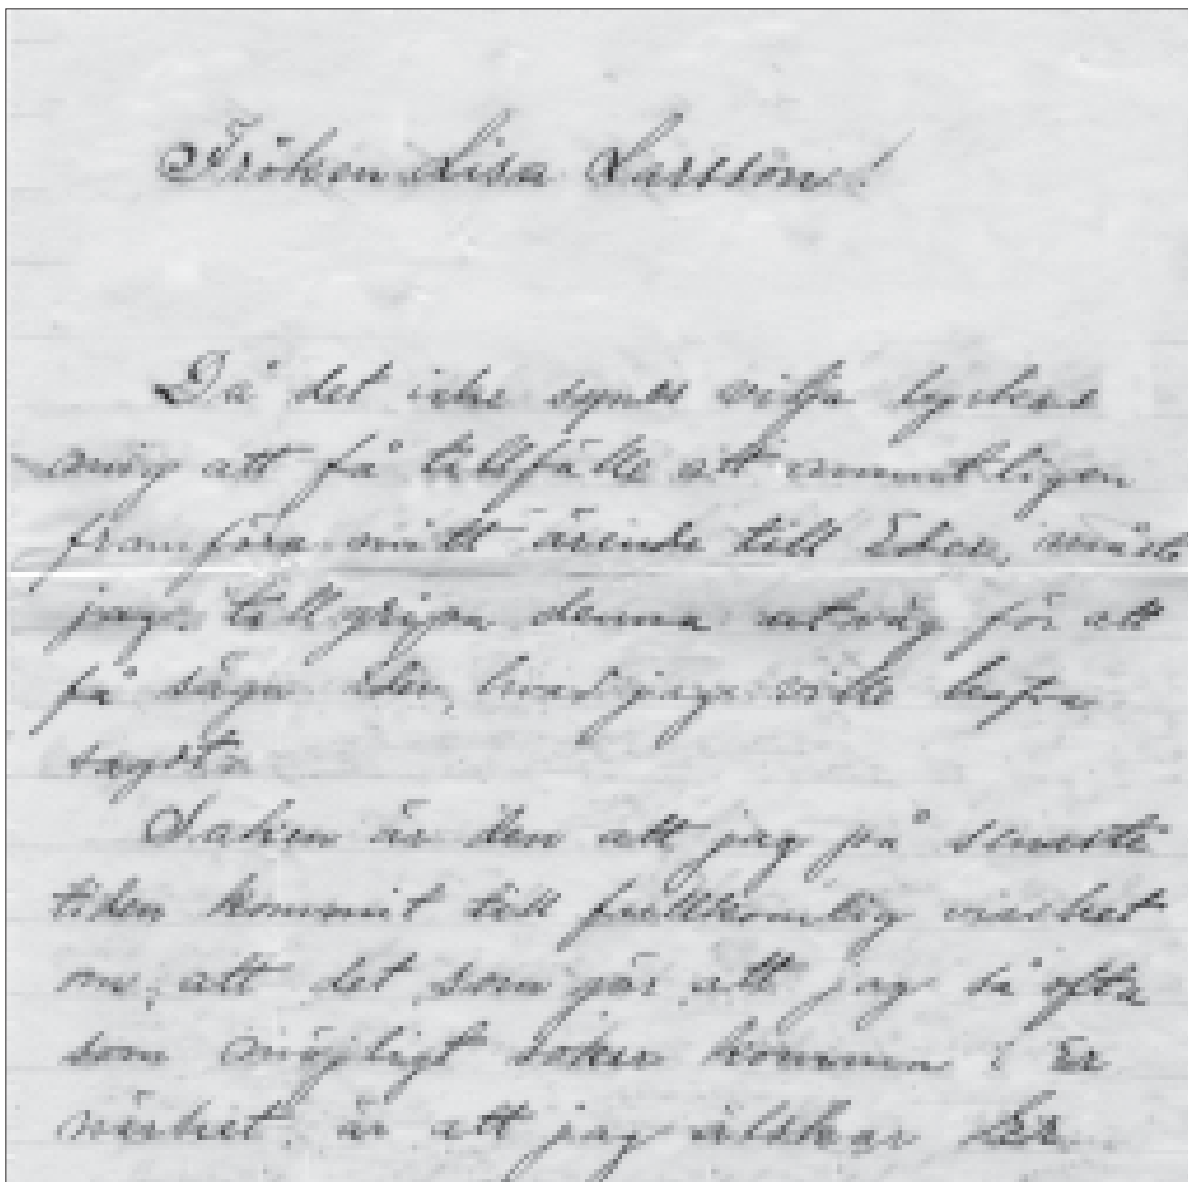 Fröken Lisa Larsson!
Då det icke synes vilja lyckas
mig att få tillfälle att muntligen
framföra mitt ärende till Eder, måste
jag tillgripa denna utväg för att
få säga Eder, hvad jag ville hafva
sagdt.
Saken är den att jag på senaste
tiden kommit till fullkomlig visshet
om, att det som gör att jag så ofta
som möjligt söker komma i Er
närhet, är att jag älskar Er.